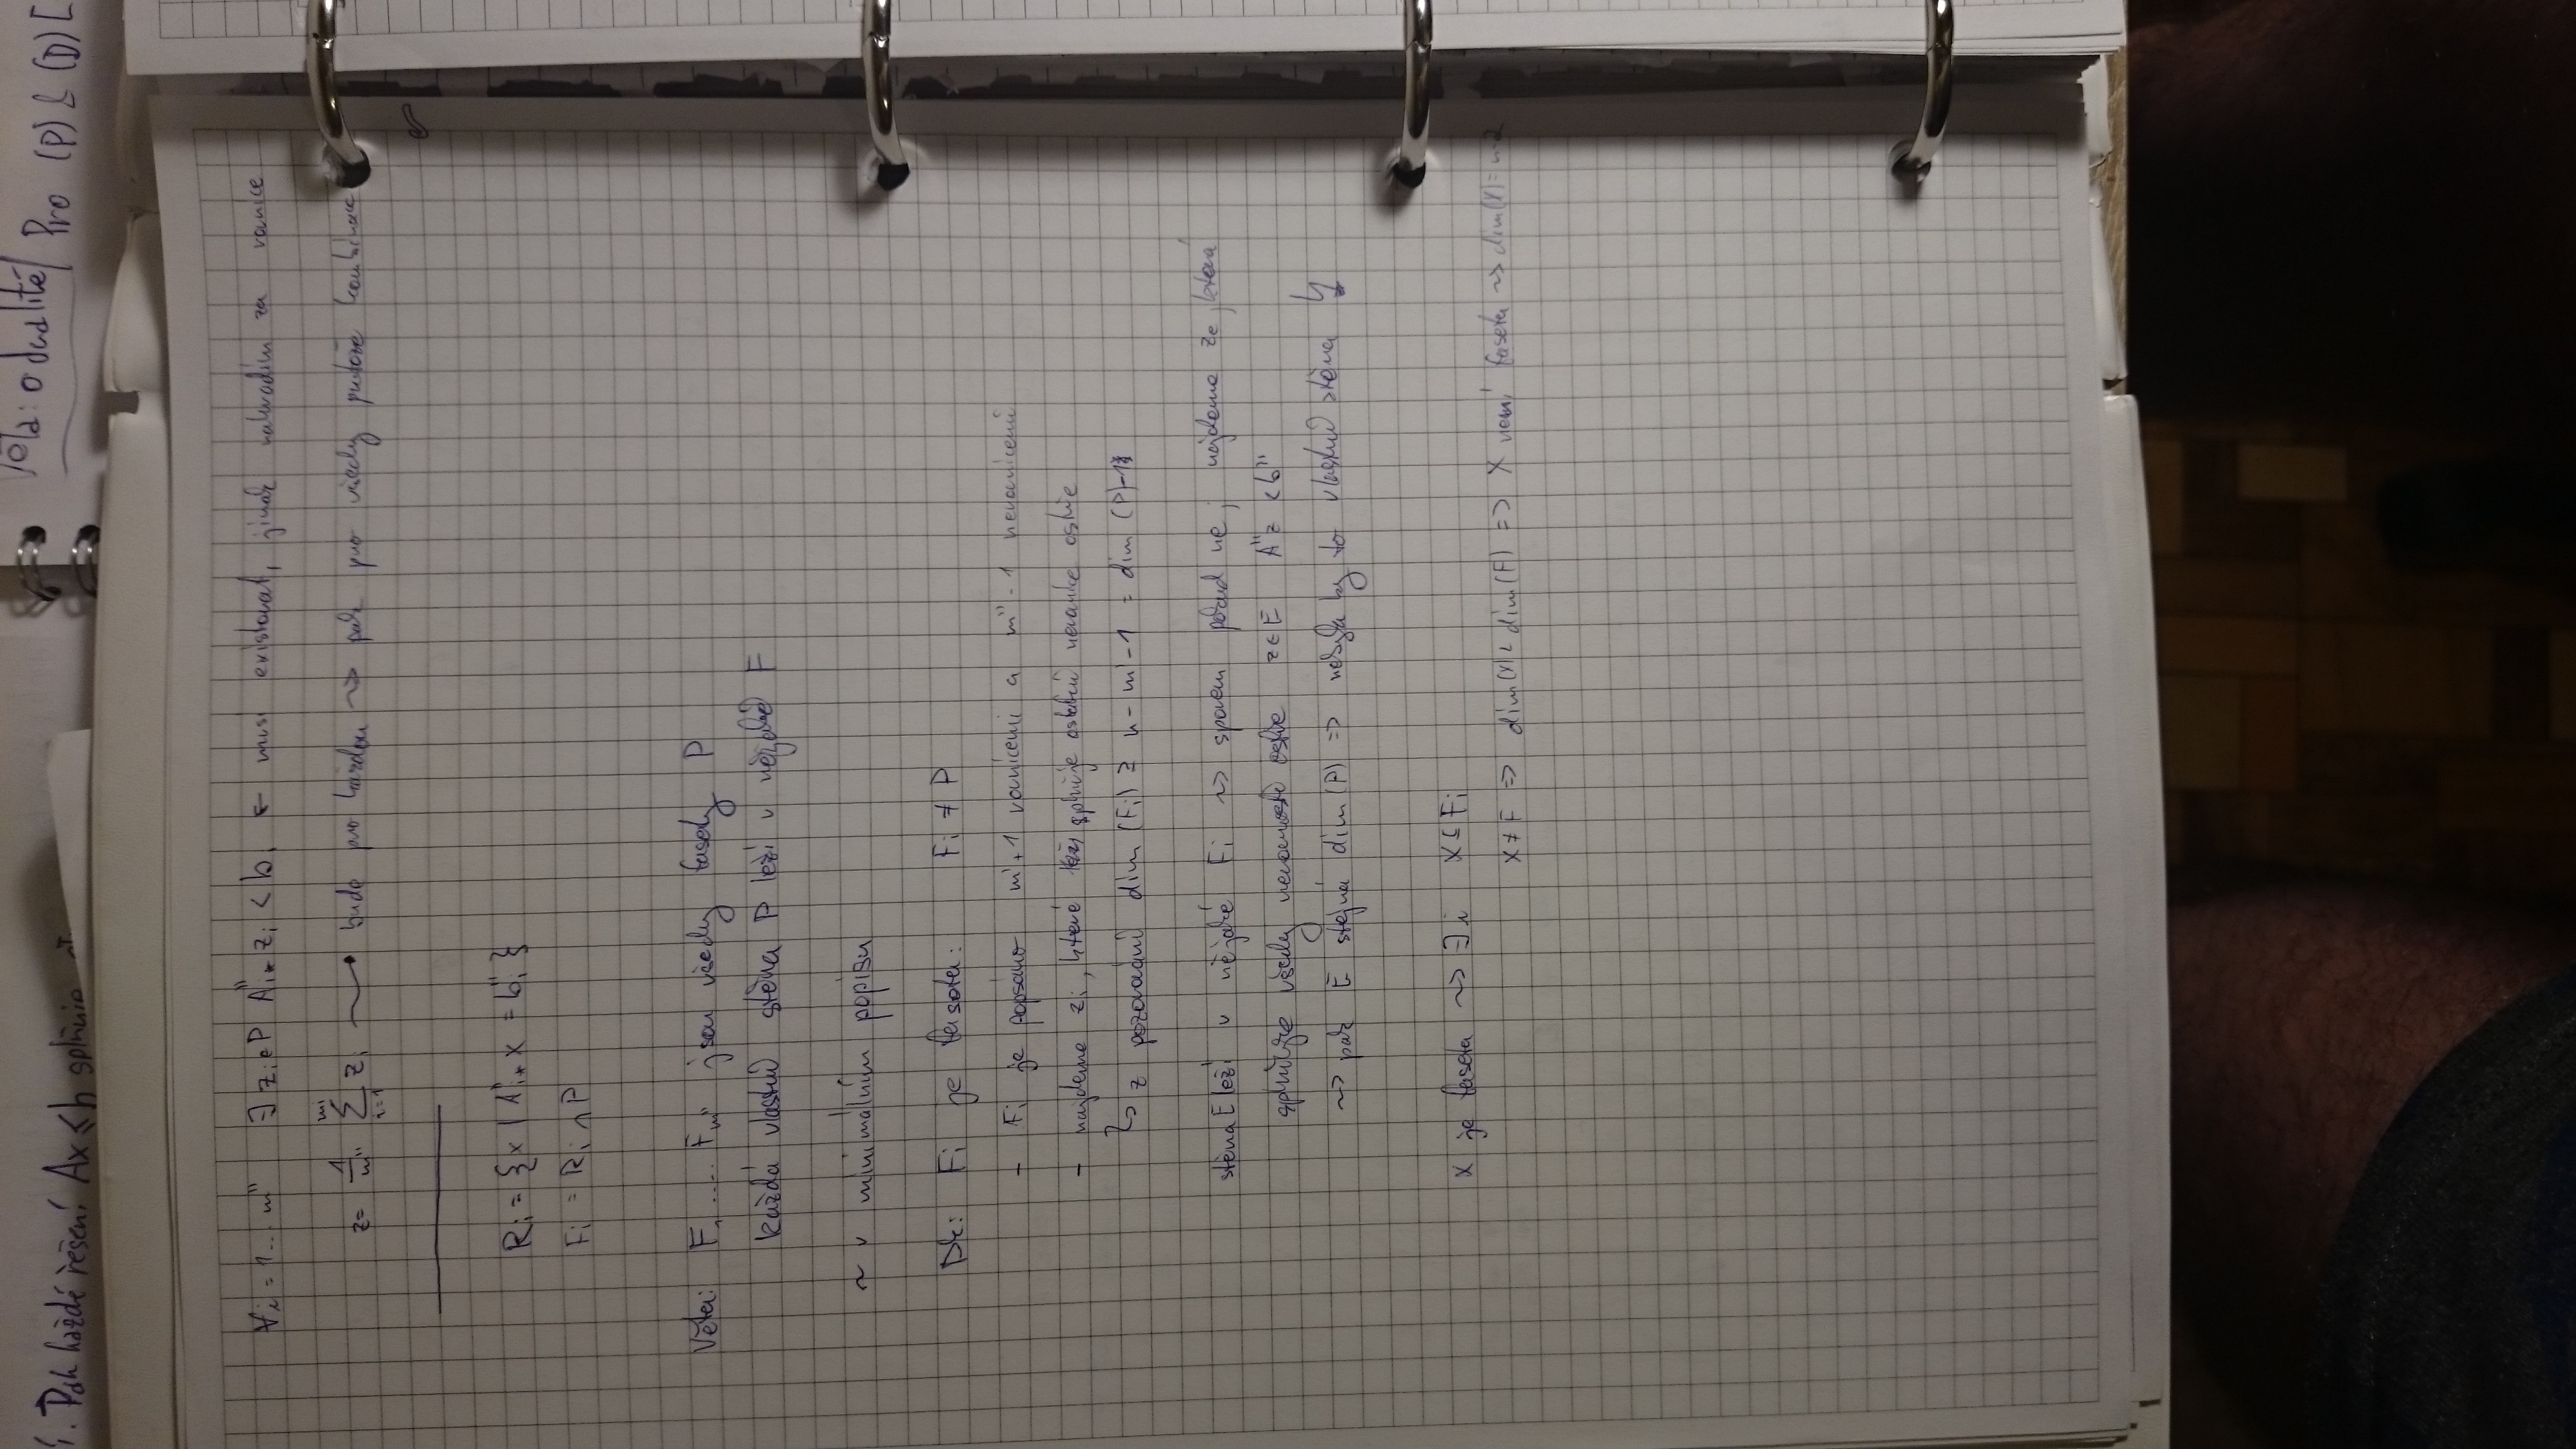 Věta: o dualitě Pro (P) & (D) [
∀i = 1...m'' ∃ z_i ∈ P A''_i* z_i < b_i ← musí existovat, jinak nahradím za rovnice
z = 1/m'' ∑_{i=1}^{m''} z_i → bude pro každou ~> pak pro všechny protože kombinace
R_i = {x | A''_i* x = b''_i}
F_i = R_i ∩ P
Věta: F_1 .... F_m'' jsou všechny fasety P
každá vlastní stěna P leží v nějaké F
~ v minimálním popisu
Dk: F_i je faseta: F_i ≠ P
- F_i je popsáno m'+1 rovnicemi a m''-1 nerovnicemi
- najdeme z_i, které splňuje ostatní nerovnice ostře
↳ z pozorování dim (F_i) ≥ n - m' - 1 = dim (P) - 1
stěna E leží v nějaké F_i ~> sporem pokud ne, najdeme z_e, která
splňuje všechny nerovnosti ostře z ∈ E A''z < b''
~> pak E stejná dim (P) => nebyla by to vlastní stěna
x je faseta ~> ∃i x ⊆ F_i
x ≠ F => dim(x) < dim(F) => x není faseta ~> dim(x) = n-2
. Pak každé řešení Ax ≤ b splňuje